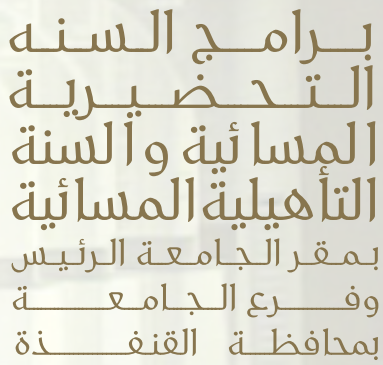 برامج السنه
التحضيرية
المسائية والسنة
التأهيلية المسائية
بمقر الجامعة الرئيس
وفرع الجامعة
بمحافظة القنفذة